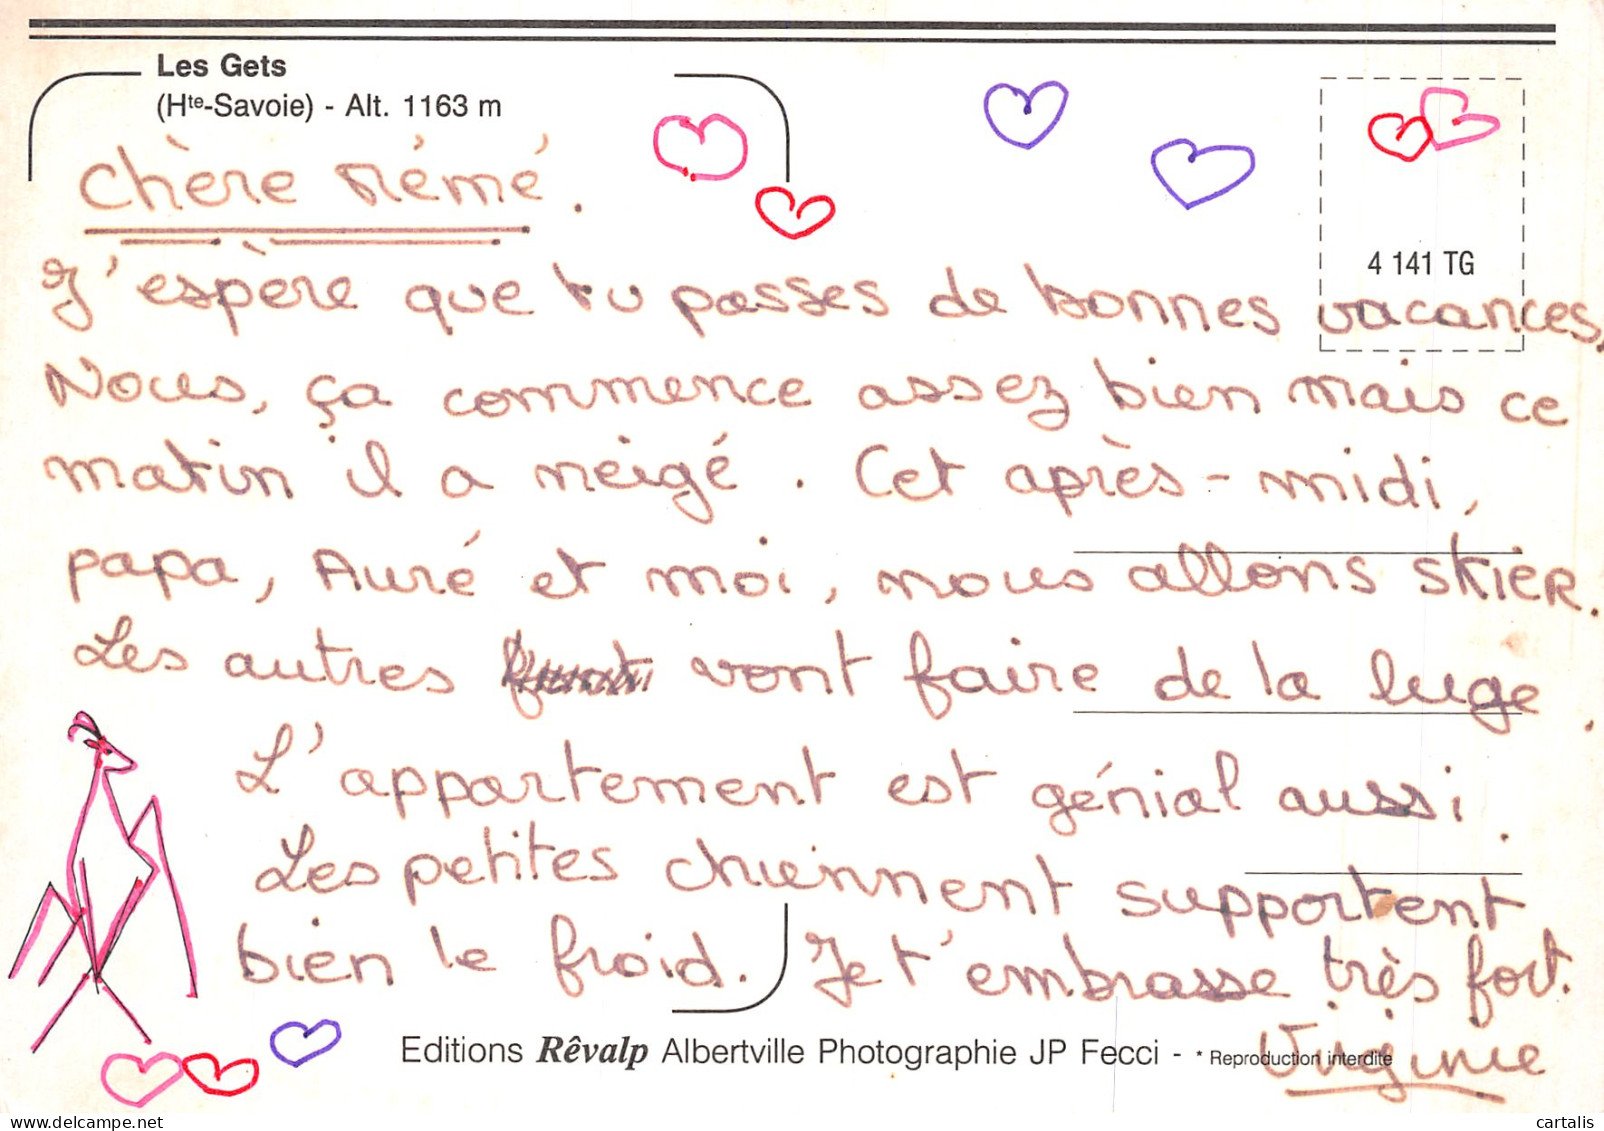 Les Gets
(Hte-Savoie) - Alt. 1163 m
4 141 TG
Chère Mémé.
J'espère que tu passes de bonnes vacances.
Nous, ça commence assez bien mais ce
matin il a neigé. Cet après-midi,
papa, Auré et moi, nous allons skier.
Les autres vont faire de la luge.
L'appartement est génial aussi.
Les petites chiennent supportent
bien le froid. Je t'embrasse très fort.
Virginie
Editions Rêvalp Albertville Photographie JP Fecci - * Reproduction interdite
cartalis